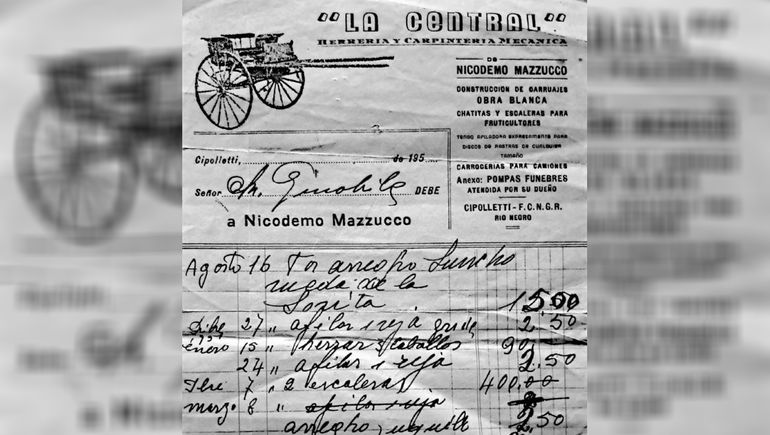 "LA CENTRAL"
HERRERIA Y CARPINTERIA MECANICA
DE
NICODEMO MAZZUCCO
CONSTRUCCION DE CARRUAJES
OBRA BLANCA
CHATITAS Y ESCALERAS PARA
FRUTICULTORES
TENGO AFILADORA EXPRESAMENTE PARA
DISCOS DE RASTRAS DE CUALQUIER
TAMAÑO
CARROCERIAS PARA CAMIONES
Anexo: POMPAS FUNEBRES
ATENDIDA POR SU DUEÑO
CIPOLLETTI - F.C.N.G.R.
RIO NEGRO
Cipolletti, de 195
Señor DEBE
a Nicodemo Mazzucco
Agosto 16 arreglo
rueda de la
15,00
27 " afilar 1 reja 2.50
enero 15 " herrar caballos 90
24 " afilar 1 reja 2.50
7 " 2 escaleras 400,00
marzo 8 " afilar reja
arreglo 2,50